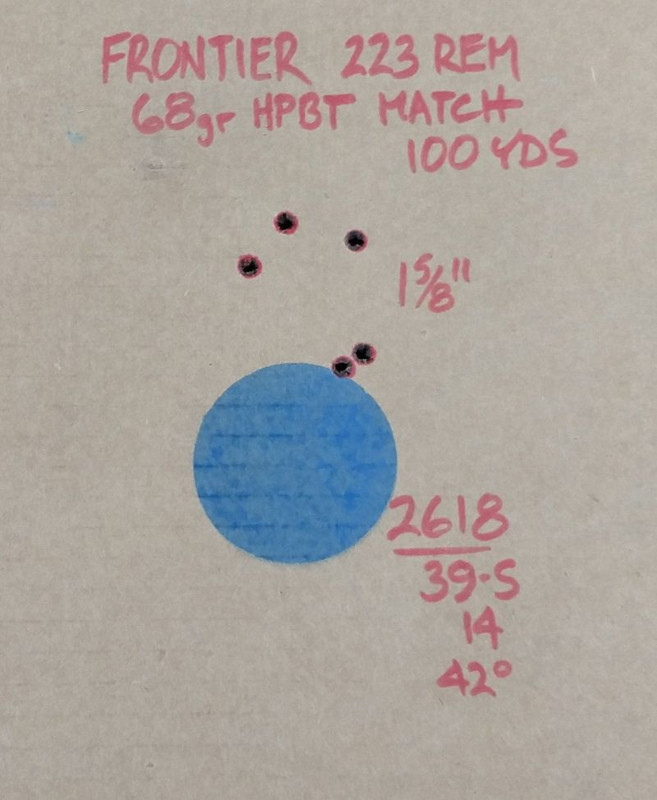 FRONTIER 223 REM
68gr HPBT MATCH
100 YDS
1 5/8"
2618
39-S
14
42°